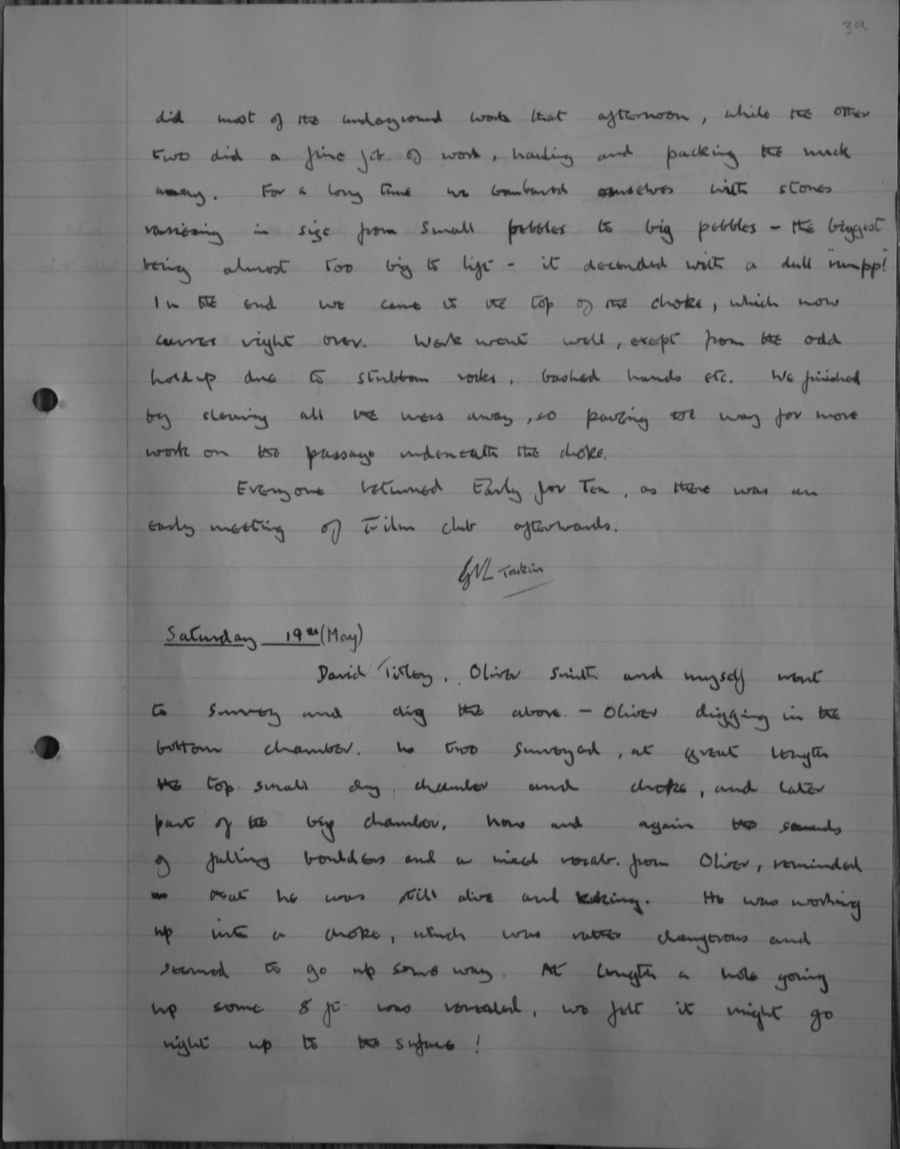 39
did most of the underground work that afternoon, while the other
two did a fine job of work, hauling and packing the muck
away. For a long time we bombared ourselves with stones
varieing in size from small pebbles to big pebbles - the biggest
being almost too big to lift - it decended with a dull
In the end we came to the top of the choke, which now
curves right over. Work went well, exept from the odd
holdup due to stubborn rocks, bashed hands etc. We finished
by clearing all the mess away, so paving the way for more
work on the passage underneath the choke.
Everyone returned Early for Tea, as there was an
early meeting of Film club afterwards.
Saturday 19th (May)
David Titley, Oliver Smith and myself went
to survey and dig the above - Oliver digging in the
bottom chamber. We two surveyed, at great length
the top small dry chamber and choke, and later
part of the big chamber. Now and again the sounds
of falling boulders and a vocab. from Oliver, reminded
us that he was still alive and kicking. He was working
up into a choke, which was rather dangerous and
seemed to go up some way. At length a hole going
up some 8 ft was revealed, we felt it might go
right up to the surface!